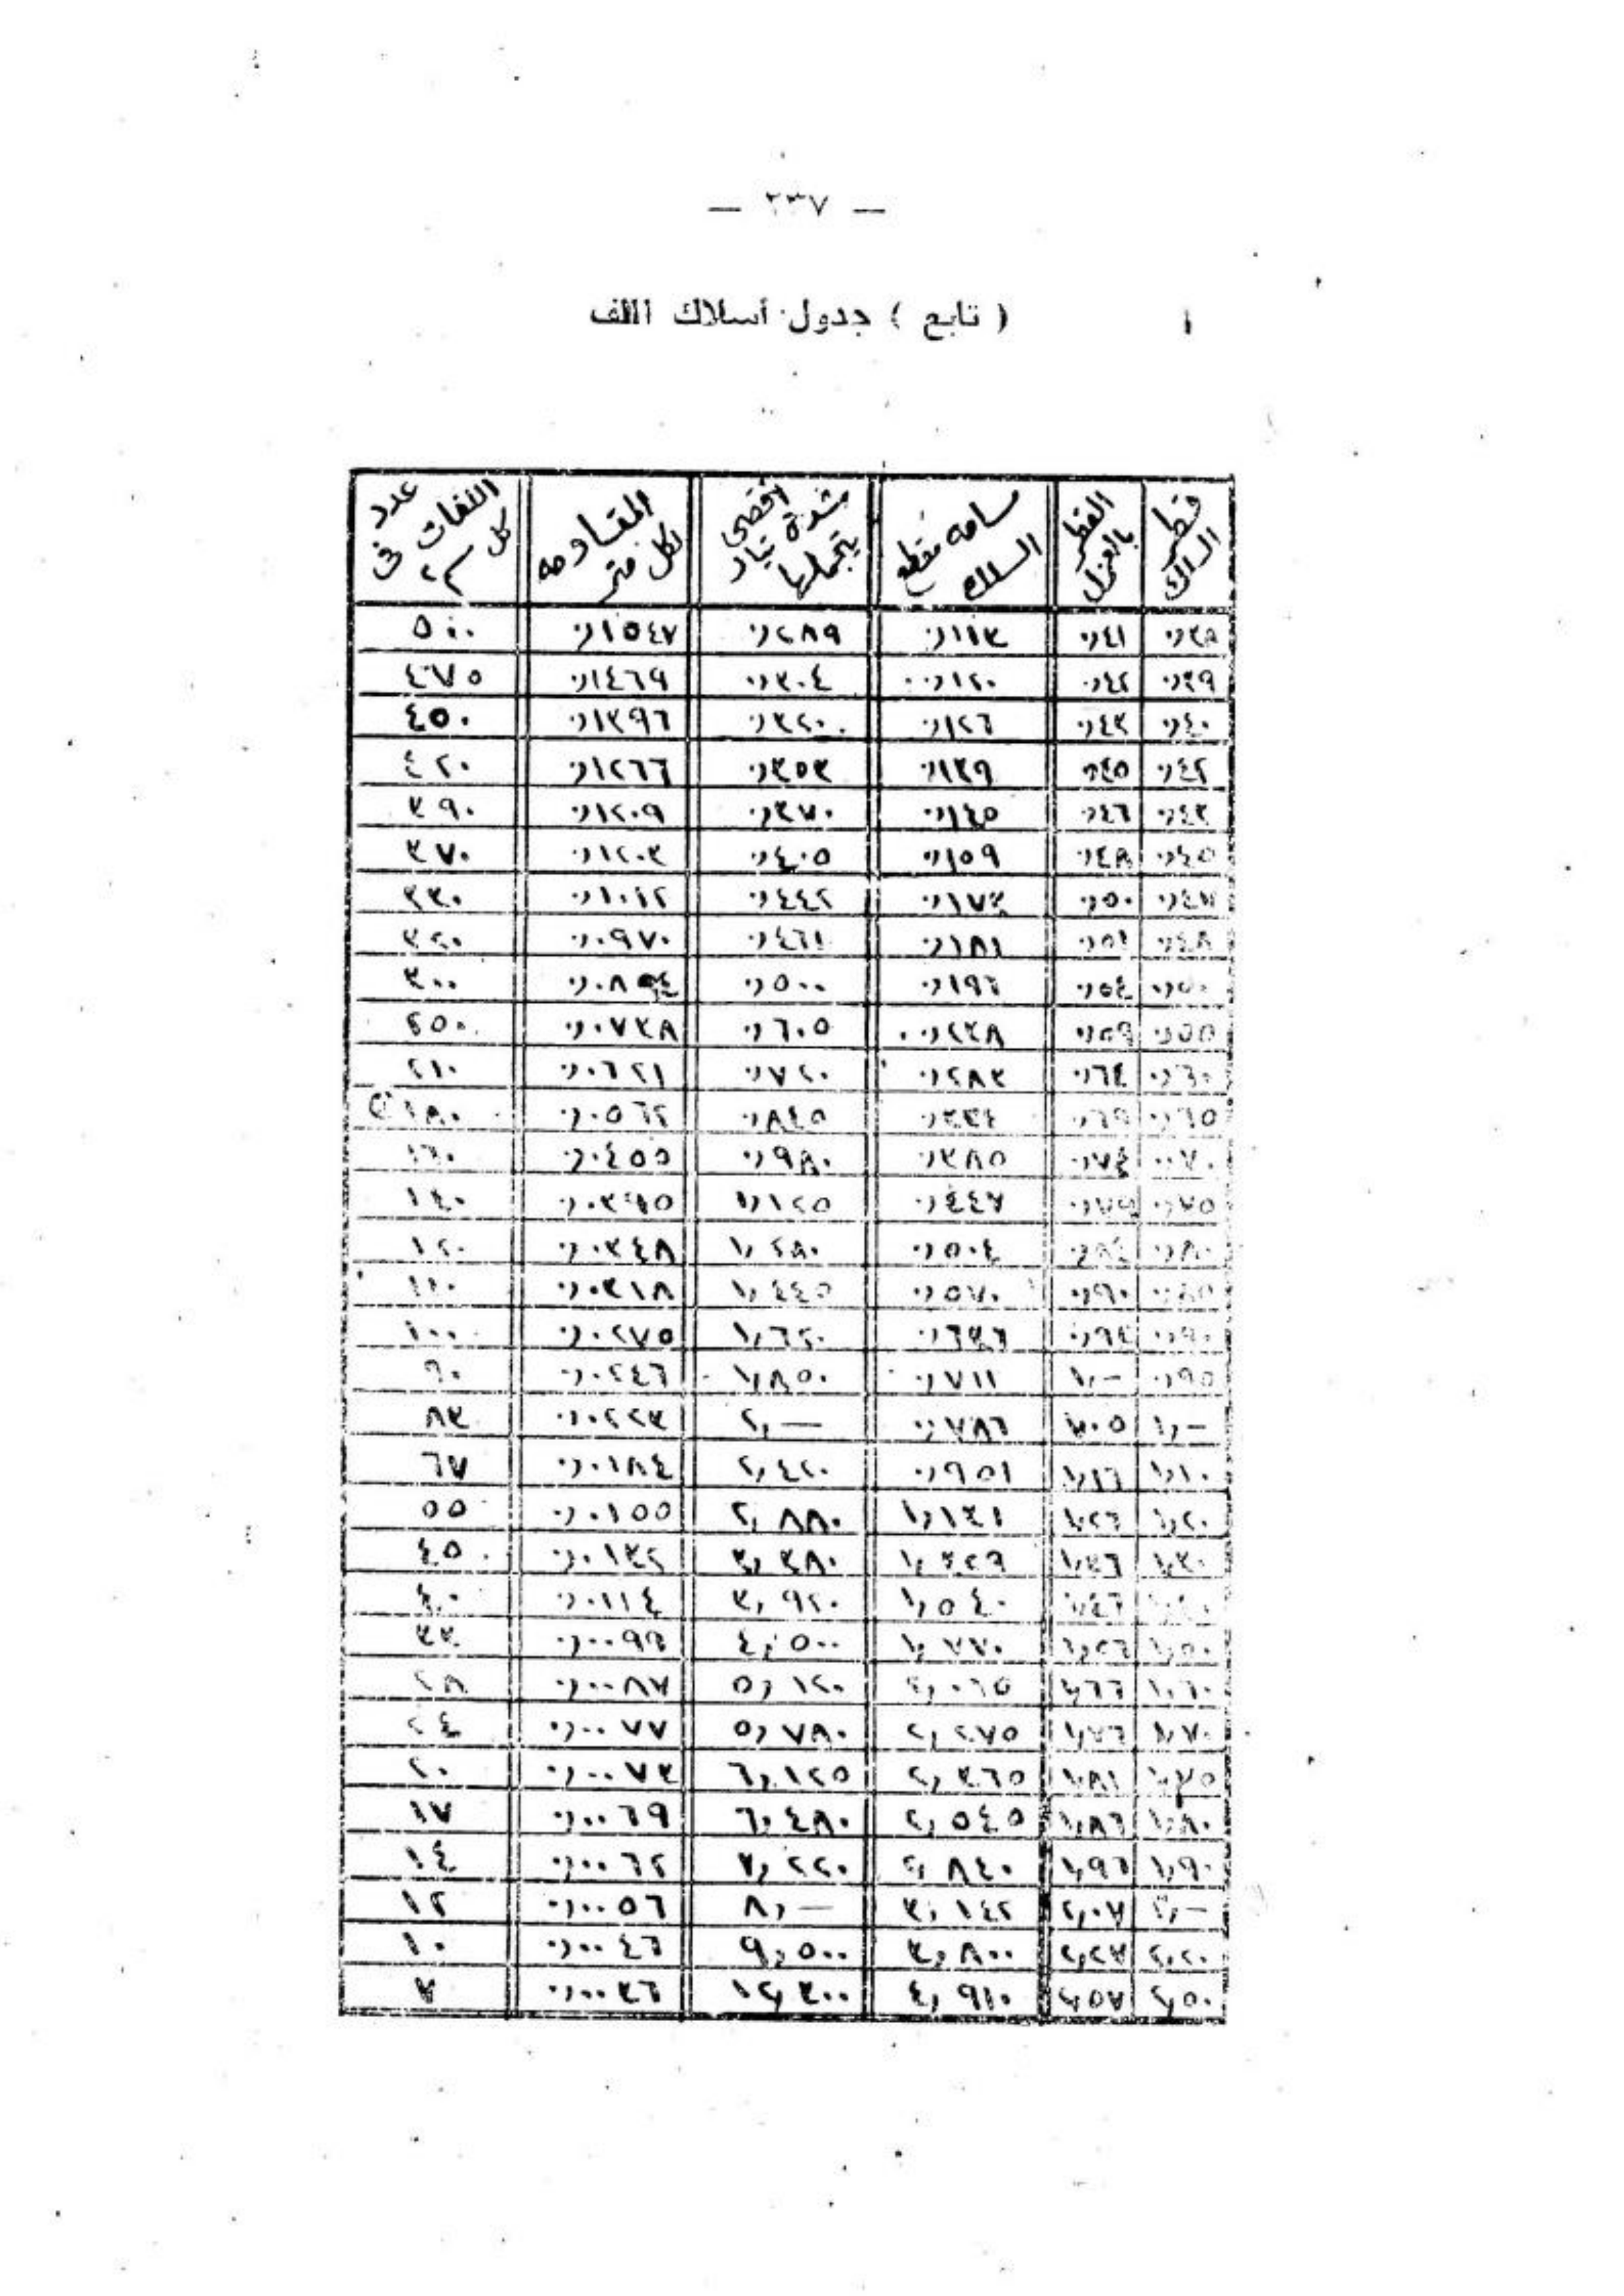 — ٢٣٧ —
( تابع ) جدول أسلاك اللف
قطر السلك | القطر بالعزل | مساحة مقطع السلك | أقصى شدة تيار يتحملها | المقاومة لكل متر | عدد اللفات فى كل سم٢
٠,٣٨ | ٠,٤١ | ٠,١١٣ | ٠,٢٨٩ | ٠,١٥٤٧ | ٥٠٠
٠,٣٩ | ٠,٤٢ | ٠,١٢٠ | ٠,٣٠٤ | ٠,١٤٦٩ | ٤٧٥
٠,٤٠ | ٠,٤٣ | ٠,١٢٦ | ٠,٣٢٠ | ٠,١٣٩٦ | ٤٥٠
٠,٤٢ | ٠,٤٥ | ٠,١٣٩ | ٠,٣٥٣ | ٠,١٢٦٦ | ٤٢٠
٠,٤٣ | ٠,٤٦ | ٠,١٤٥ | ٠,٣٧٠ | ٠,١٢٠٩ | ٣٩٠
٠,٤٥ | ٠,٤٨ | ٠,١٥٩ | ٠,٤٠٥ | ٠,١٢٠٣ | ٣٧٠
٠,٤٧ | ٠,٥٠ | ٠,١٧٣ | ٠,٤٤٢ | ٠,١٠١٢ | ٣٣٠
٠,٤٨ | ٠,٥١ | ٠,١٨١ | ٠,٤٦١ | ٠,٠٩٧٠ | ٣٢٠
٠,٥٠ | ٠,٥٤ | ٠,١٩٦ | ٠,٥٠٠ | ٠,٠٨٩٤ | ٣٠٠
٠,٥٥ | ٠,٥٩ | ٠,٢٣٨ | ٠,٦٠٥ | ٠,٠٧٣٨ | ٢٥٠
٠,٦٠ | ٠,٦٤ | ٠,٢٨٣ | ٠,٧٢٠ | ٠,٠٦٢١ | ٢١٠
٠,٦٥ | ٠,٦٩ | ٠,٣٣٤ | ٠,٨٤٥ | ٠,٠٥٦٢ | ١٨٠
٠,٧٠ | ٠,٧٤ | ٠,٣٨٥ | ٠,٩٨٠ | ٠,٠٤٥٥ | ١٦٠
٠,٧٥ | ٠,٧٩ | ٠,٤٤٧ | ١,١٢٥ | ٠,٠٣٩٥ | ١٤٠
٠,٨٠ | ٠,٨٤ | ٠,٥٠٤ | ١,٢٨٠ | ٠,٠٣٤٨ | ١٢٠
٠,٨٥ | ٠,٩٠ | ٠,٥٧٠ | ١,٤٤٥ | ٠,٠٣١٨ | ١١٠
٠,٩٠ | ٠,٩٤ | ٠,٦٣٦ | ١,٦٢٠ | ٠,٠٢٧٥ | ١٠٠
٠,٩٥ | ١,— | ٠,٧١١ | ١,٨٥٠ | ٠,٠٢٤٦ | ٩٠
١,— | ١,٠٥ | ٠,٧٨٦ | ٢,— | ٠,٠٢٢٣ | ٨٣
١,١٠ | ١,١٦ | ٠,٩٥١ | ٢,٤٢٠ | ٠,٠١٨٤ | ٦٧
١,٢٠ | ١,٢٦ | ١,١٣١ | ٢,٨٨٠ | ٠,٠١٥٥ | ٥٥
١,٣٠ | ١,٣٦ | ١,٣٢٩ | ٣,٣٨٠ | ٠,٠١٣٢ | ٤٥
١,٤٠ | ١,٤٦ | ١,٥٤٠ | ٣,٩٢٠ | ٠,٠١١٤ | ٤٠
١,٥٠ | ١,٥٦ | ١,٧٧٠ | ٤,٥٠٠ | ٠,٠٠٩٩ | ٣٣
١,٦٠ | ١,٦٦ | ٢,٠١٥ | ٥,١٢٠ | ٠,٠٠٨٧ | ٢٨
١,٧٠ | ١,٧٦ | ٢,٢٧٥ | ٥,٧٨٠ | ٠,٠٠٧٧ | ٢٤
١,٧٥ | ١,٨١ | ٢,٣٦٥ | ٦,١٢٥ | ٠,٠٠٧٣ | ٢٠
١,٨٠ | ١,٨٦ | ٢,٥٤٥ | ٦,٤٨٠ | ٠,٠٠٦٩ | ١٧
١,٩٠ | ١,٩٦ | ٢,٨٤٠ | ٧,٢٢٠ | ٠,٠٠٦٢ | ١٤
٢,— | ٢,٠٧ | ٣,١٤٢ | ٨,— | ٠,٠٠٥٦ | ١٢
٢,٢٠ | ٢,٢٧ | ٣,٨٠٠ | ٩,٥٠٠ | ٠,٠٠٤٦ | ١٠
٢,٥٠ | ٢,٥٧ | ٤,٩١٠ | ١٢,٣٠٠ | ٠,٠٠٣٦ | ٨